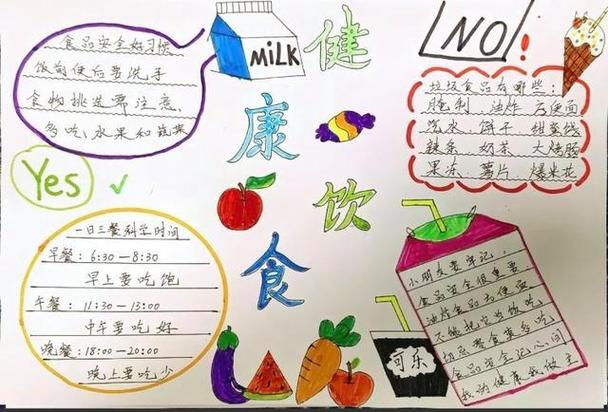 食品安全好习惯
饭前便后要洗手
食物挑选要注意
多吃水果和蔬菜
MiLK
健康饮食
NO!
垃圾食品有哪些:
腌制 油炸 方便面
汽水 饼干 甜蛋筒
辣条 奶茶 大烤肠
果冻 薯片 爆米花
Yes
一日三餐科学时间
早餐:6:30—8:30
早上要吃饱
午餐:11:30—13:00
中午要吃好
晚餐:18:00—20:00
晚上要吃少
可乐
小朋友要牢记,
食品安全很重要
油炸食品方便面
不能把它当饭吃
切忌零食莫多吃
食品安全记心间
我为健康我做主